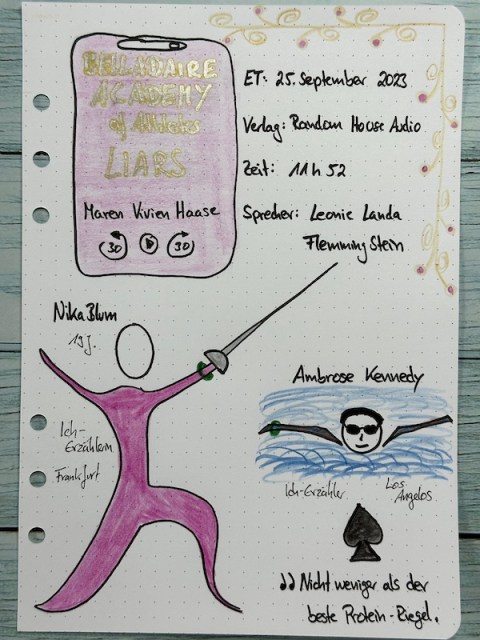 BELLADAIRE
ACADEMY
of Athletes
LIARS
Maren Vivien Haase
30 30
ET: 25. September 2023
Verlag: Random House Audio
Zeit: 11h 52
Sprecher: Leonie Landa
Flemming Stein
Nika Blum
19 J.
Ich-
Erzählerin
Frankfurt
Ambrose Kennedy
Ich-Erzähler
Los
Angelos
„Nicht weniger als der
beste Protein-Riegel.